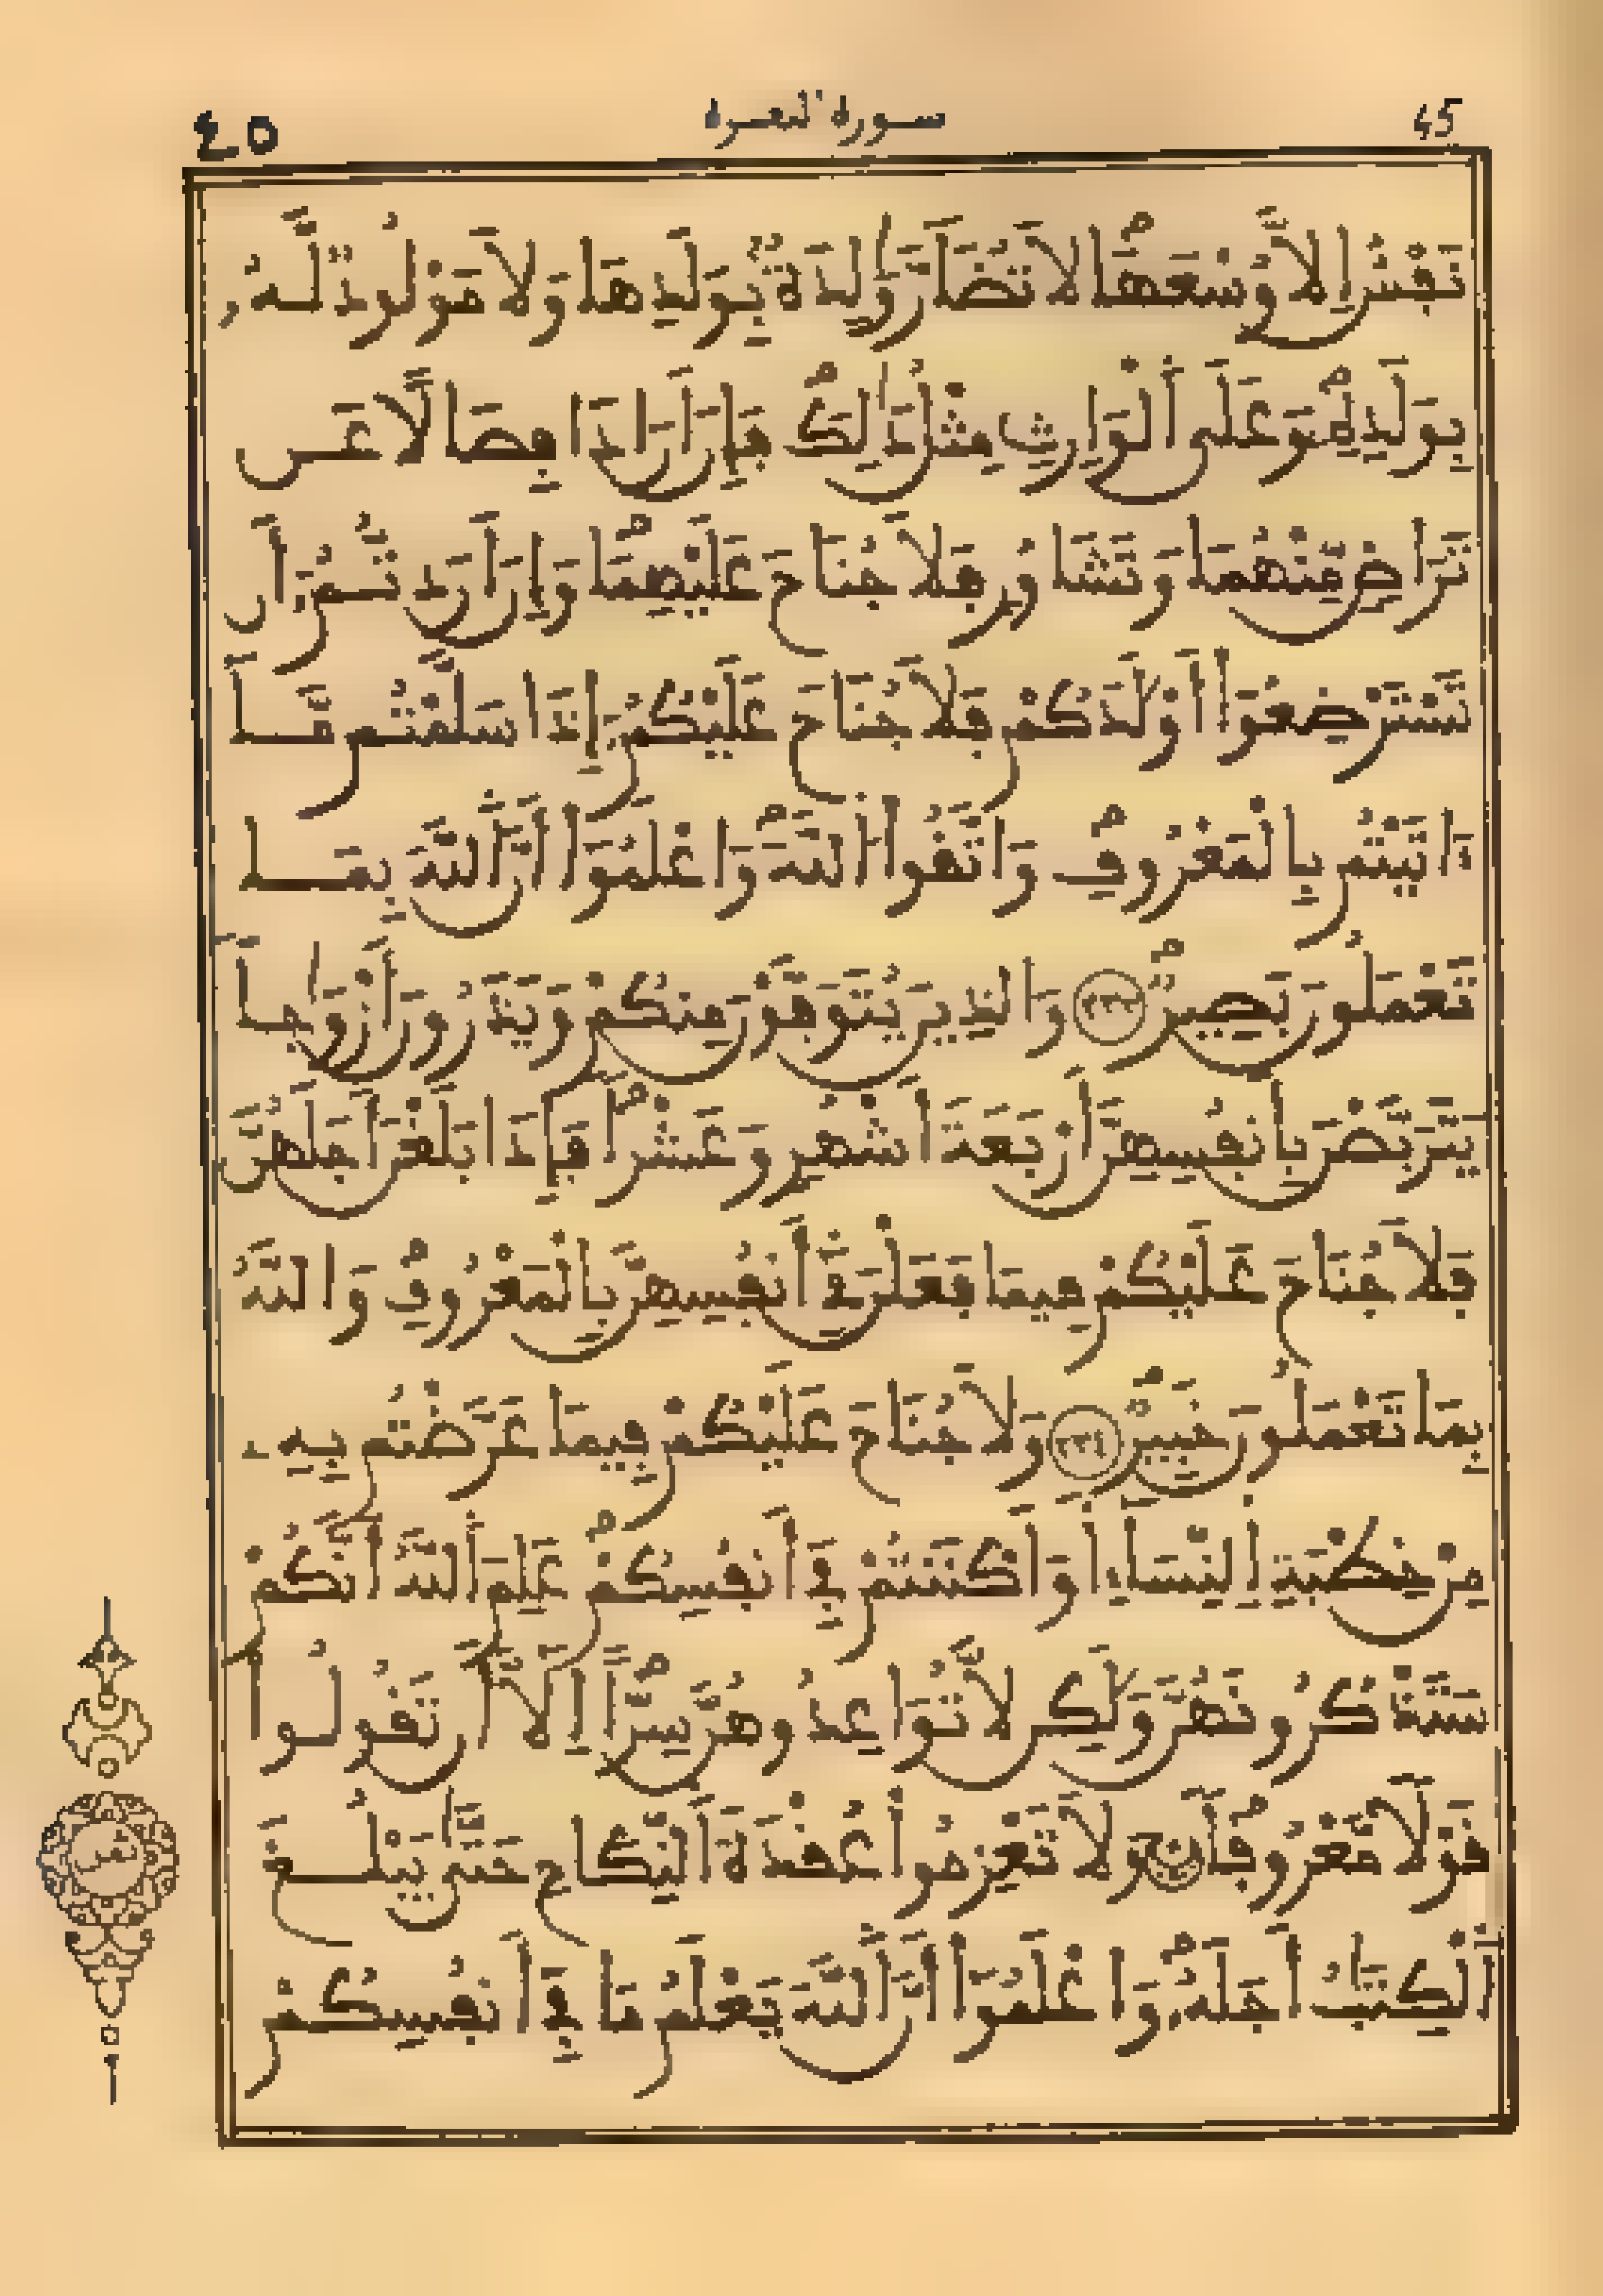 ٤٥ سورة البقرة 45
نَفْسٌ إِلَّا وُسْعَهَا لَا تُضَارَّ وَٰلِدَةٌۢ بِوَلَدِهَا وَلَا مَوْلُودٌ لَّهُۥ
بِوَلَدِهِۦ وَعَلَى ٱلْوَارِثِ مِثْلُ ذَٰلِكَ فَإِنْ أَرَادَا فِصَالًا عَن
تَرَاضٍ مِّنْهُمَا وَتَشَاوُرٍ فَلَا جُنَاحَ عَلَيْهِمَا وَإِنْ أَرَدتُّمُۥٓ أَن
تَسْتَرْضِعُوٓا۟ أَوْلَٰدَكُمْ فَلَا جُنَاحَ عَلَيْكُمُۥٓ إِذَا سَلَّمْتُم مَّآ
ءَاتَيْتُم بِالْمَعْرُوفِ وَاتَّقُوا۟ اللَّهَ وَاعْلَمُوٓا۟ أَنَّ اللَّهَ بِمَا
تَعْمَلُونَ بَصِيرٌ وَالَّذِينَ يُتَوَفَّوْنَ مِنكُمْ وَيَذَرُونَ أَزْوَٰجًا
يَتَرَبَّصْنَ بِأَنفُسِهِنَّ أَرْبَعَةَ أَشْهُرٍ وَعَشْرًا فَإِذَا بَلَغْنَ أَجَلَهُنَّ
فَلَا جُنَاحَ عَلَيْكُمْ فِيمَا فَعَلْنَ فِىٓ أَنفُسِهِنَّ بِالْمَعْرُوفِ وَاللَّهُ
بِمَا تَعْمَلُونَ خَبِيرٌ وَلَا جُنَاحَ عَلَيْكُمْ فِيمَا عَرَّضْتُم بِهِۦ
مِنْ خِطْبَةِ اِ۬لنِّسَآءِ اَ۬وَاَكْنَنتُمْ فِىٓ أَنفُسِكُمْ عَلِمَ اَ۬للَّهُ أَنَّكُمْ
سَتَذْكُرُونَهُنَّ وَلَٰكِن لَّا تُوَاعِدُوهُنَّ سِرًّا إِلَّآ أَن تَقُولُوا۟
قَوْلًا مَّعْرُوفًا وَلَا تَعْزِمُوا۟ عُقْدَةَ اَ۬لنِّكَاحِ حَتَّىٰ يَبْلُغَ
اَ۬لْكِتَٰبُ أَجَلَهُۥ وَاعْلَمُوٓا۟ أَنَّ اَ۬للَّهَ يَعْلَمُ مَا فِىٓ أَنفُسِكُمْ